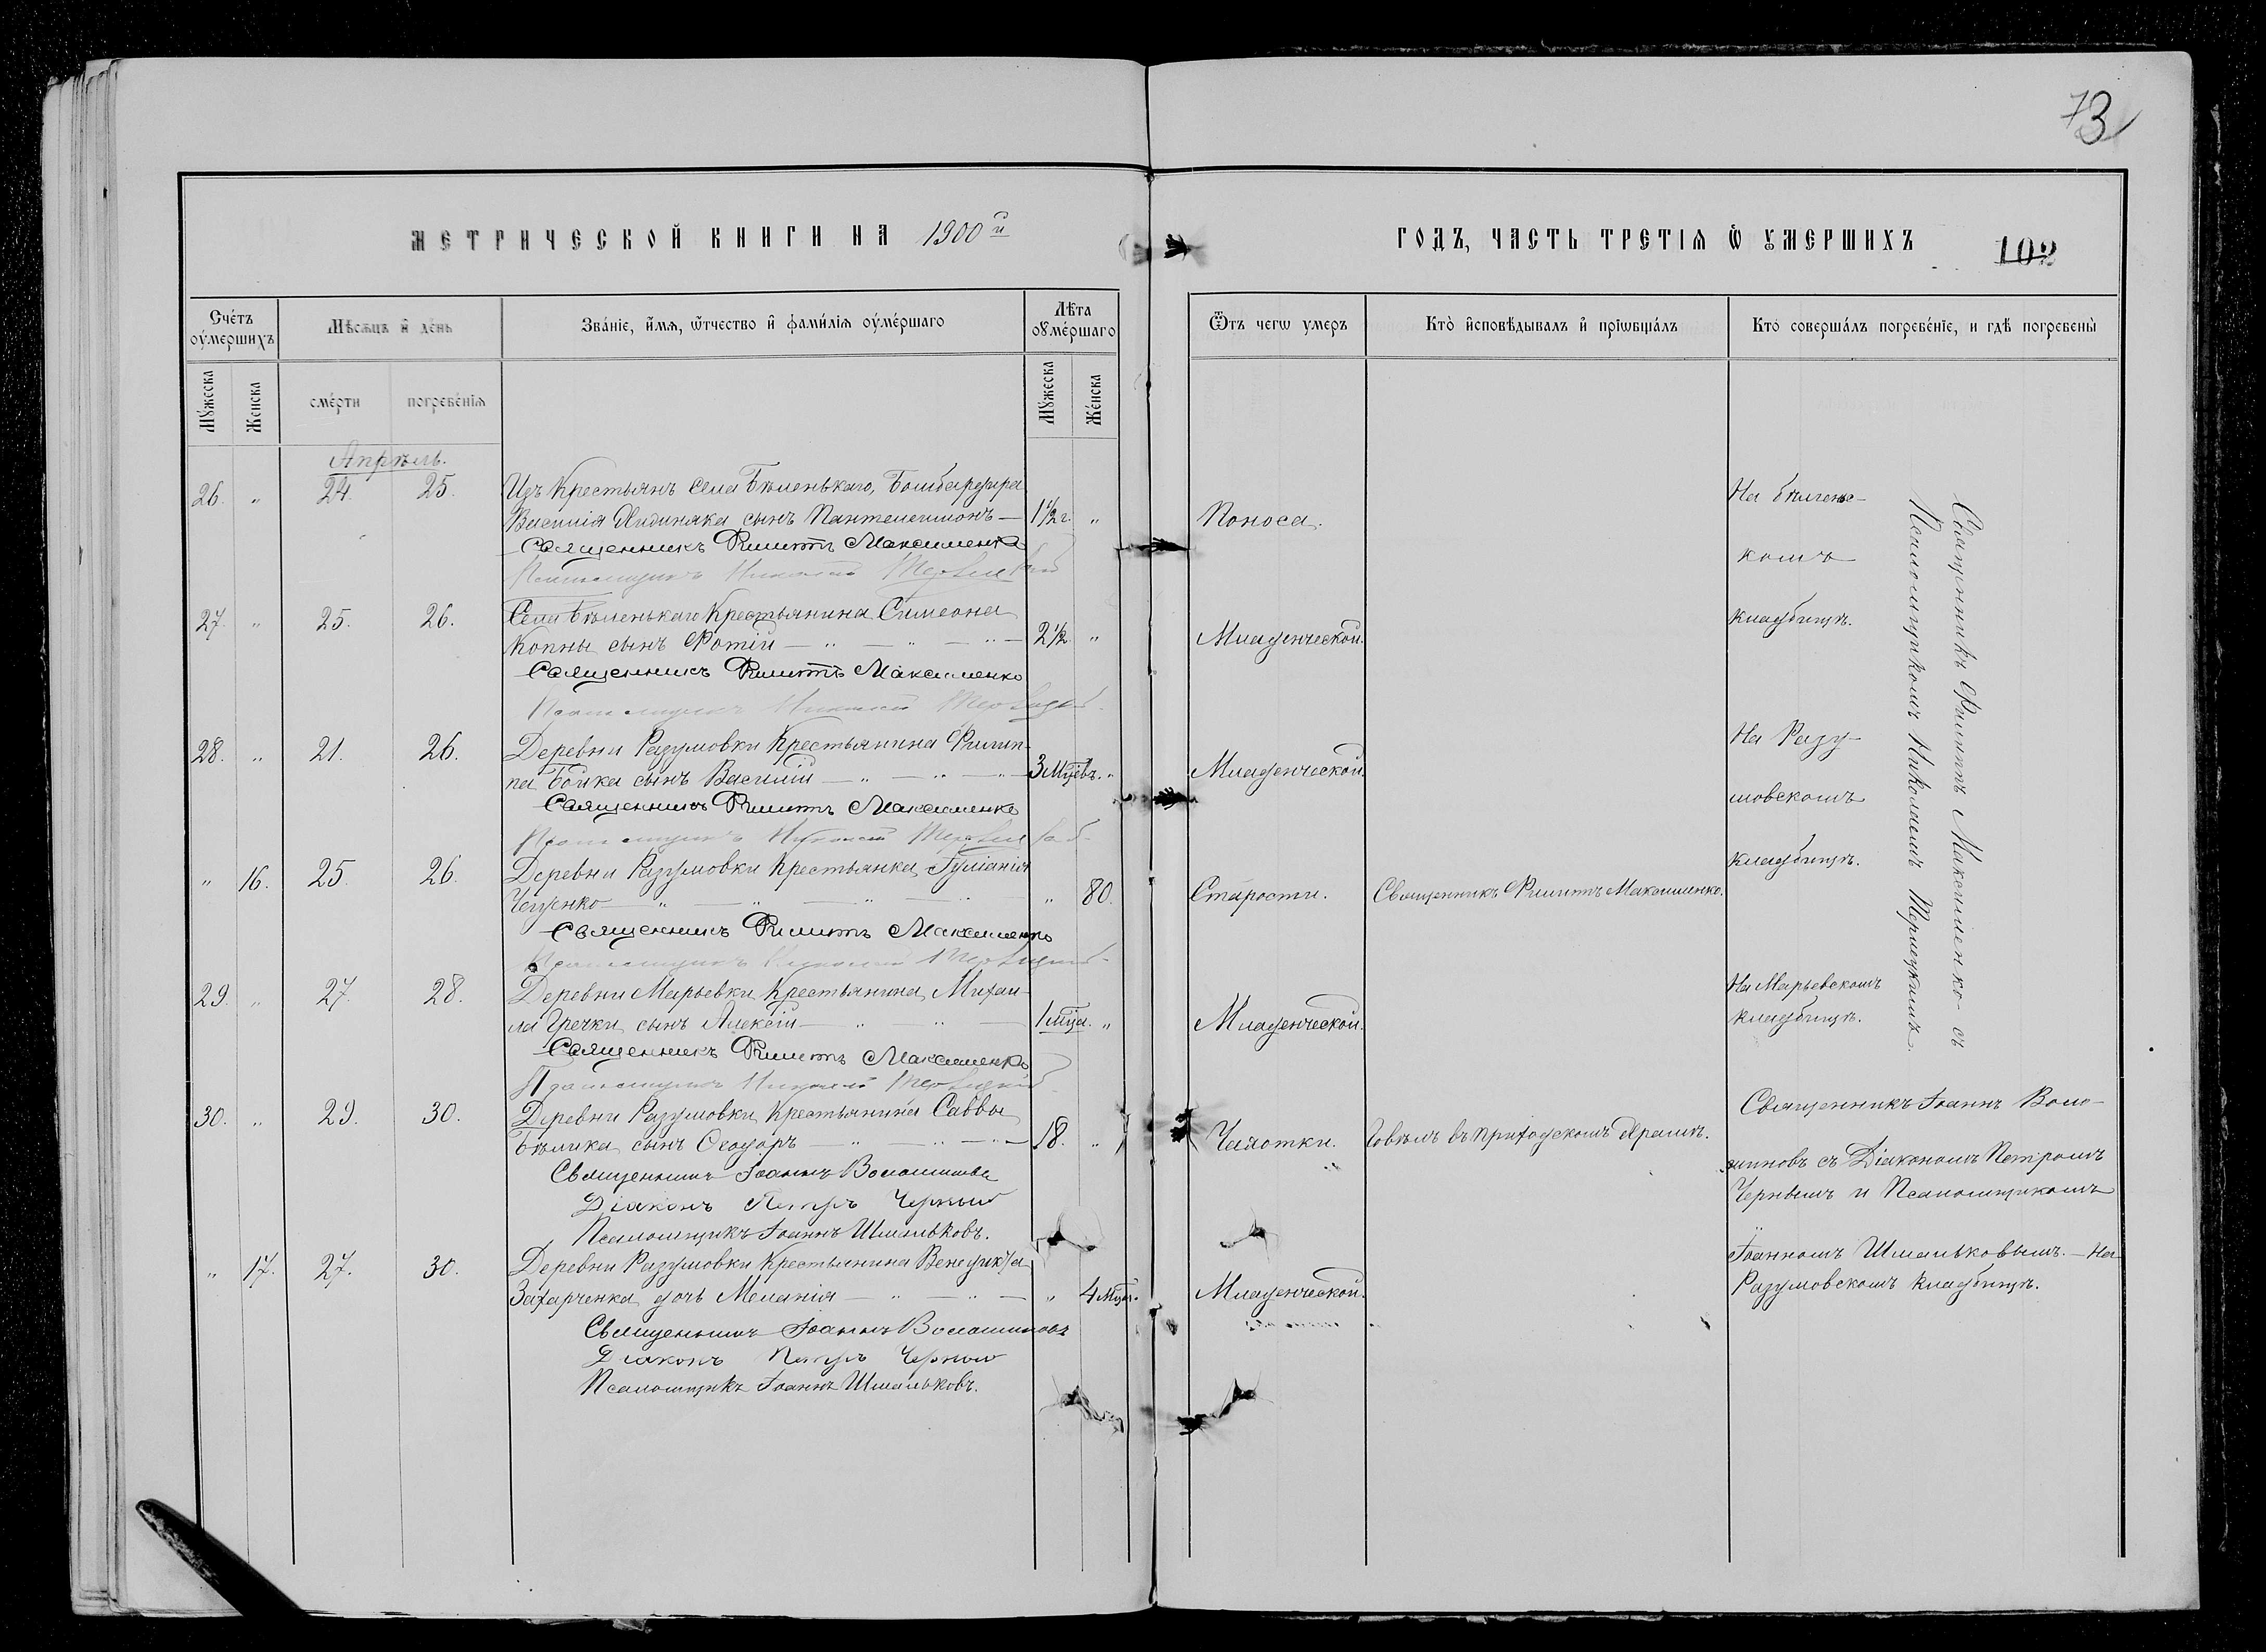 73
МЕТРИЧЕСКОЙ КНИГИ НА 1900й
ГОДЪ, ЧАСТЬ ТРЕТІЯ Ѿ УМЕРШИХЪ
102
Счетъ оумершихъ
Мѣсяцъ и день
Званіе, имя, ѿтчество и фамилія оумершаго
Лѣта оумершаго
Ѿтъ чегѡ умеръ
Кто исповѣдывалъ и пріѡбщалъ
Кто совершалъ погребеніе, и гдѣ погребены
Мужеска
Женска
смерти
погребенія
Мужеска
Женска
Апрѣль.
26. „ 24. 25. Изъ Крестьянъ села Бѣленькаго, Бомбардира
Василія Дидинака сынъ Пантелеимонъ — 1½ г. „ Поноса.
Священникъ Филиппъ Максименко
Псаломщикъ Николай
На Бѣленс-
комъ
кладбищѣ.
27. „ 25. 26. Села Бѣленькаго Крестьянина Симеона
Копны сынъ Фотій — „ — „ — „ — 2½ „ Младенческой.
Священникъ Филиппъ Максименко
Псаломщикъ Николай
28. „ 21. 26. Деревни Разумовки Крестьянина Филип-
па Бойка сынъ Василій — „ — „ — „ — 3 мцевъ. „ Младенческой.
Священникъ Филиппъ Максименко
Псаломщикъ Николай
На Разу-
мовскомъ
кладбищѣ.
„ 16. 25. 26. Деревни Разумовки Крестьянка Іуліанія
Чещенко — „ — „ — „ — „ 80. Старости. Священникъ Филиппъ Максименко.
Священникъ Филиппъ Максименко
Псаломщикъ Николай
29. „ 27. 28. Деревни Марьевки Крестьянина Михаи-
ла Гречки сынъ Алексій — „ — „ — 1 мца. „ Младенческой.
Священникъ Филиппъ Максименко
Псаломщикъ Николай
На Марьевскомъ
кладбищѣ.
Священникъ Филиппъ Максименко съ
Псаломщикомъ Николаемъ
30. „ 29. 30. Деревни Разумовки Крестьянина Саввы
Бѣлика сынъ Ѳеодоръ — „ — „ — „ — 18. „ Чахотки. Говѣлъ въ приходскомъ Храмѣ.
Священникъ Іоаннъ Волошиновъ
Діаконъ Петръ Черный
Псаломщикъ Іоаннъ Шмальковъ.
Священникъ Іоаннъ Воло-
шиновъ съ Діакономъ Петромъ
Чернымъ и Псаломщикомъ
Іоанномъ Шмальковымъ. — На
Разумовскомъ кладбищѣ.
„ 17. 27. 30. Деревни Разумовки Крестьянина Венедикта
Захарченка дочь Меланія — „ — „ — „ 4 мцъ. Младенческой.
Священникъ Іоаннъ Волошиновъ
Діаконъ Петръ Черный
Псаломщикъ Іоаннъ Шмальковъ.